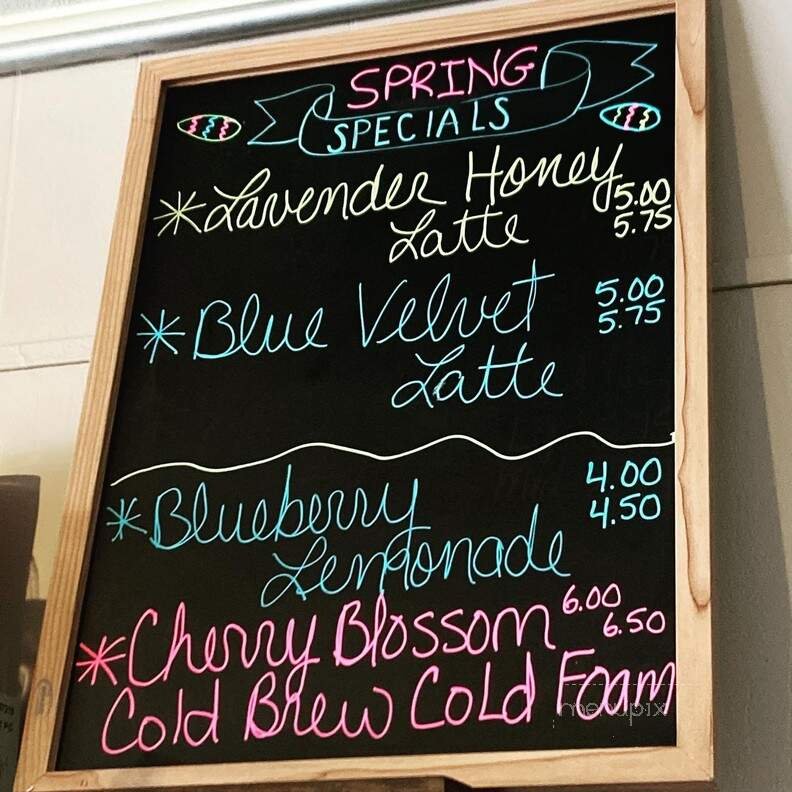 SPRING
SPECIALS
*Lavender Honey 5.00
Latte 5.75
*Blue Velvet 5.00
5.75
Latte
*Blueberry 4.00
4.50
Lemonade
*Cherry Blossom 6.00
6.50
Cold Brew Cold Foam
menupix